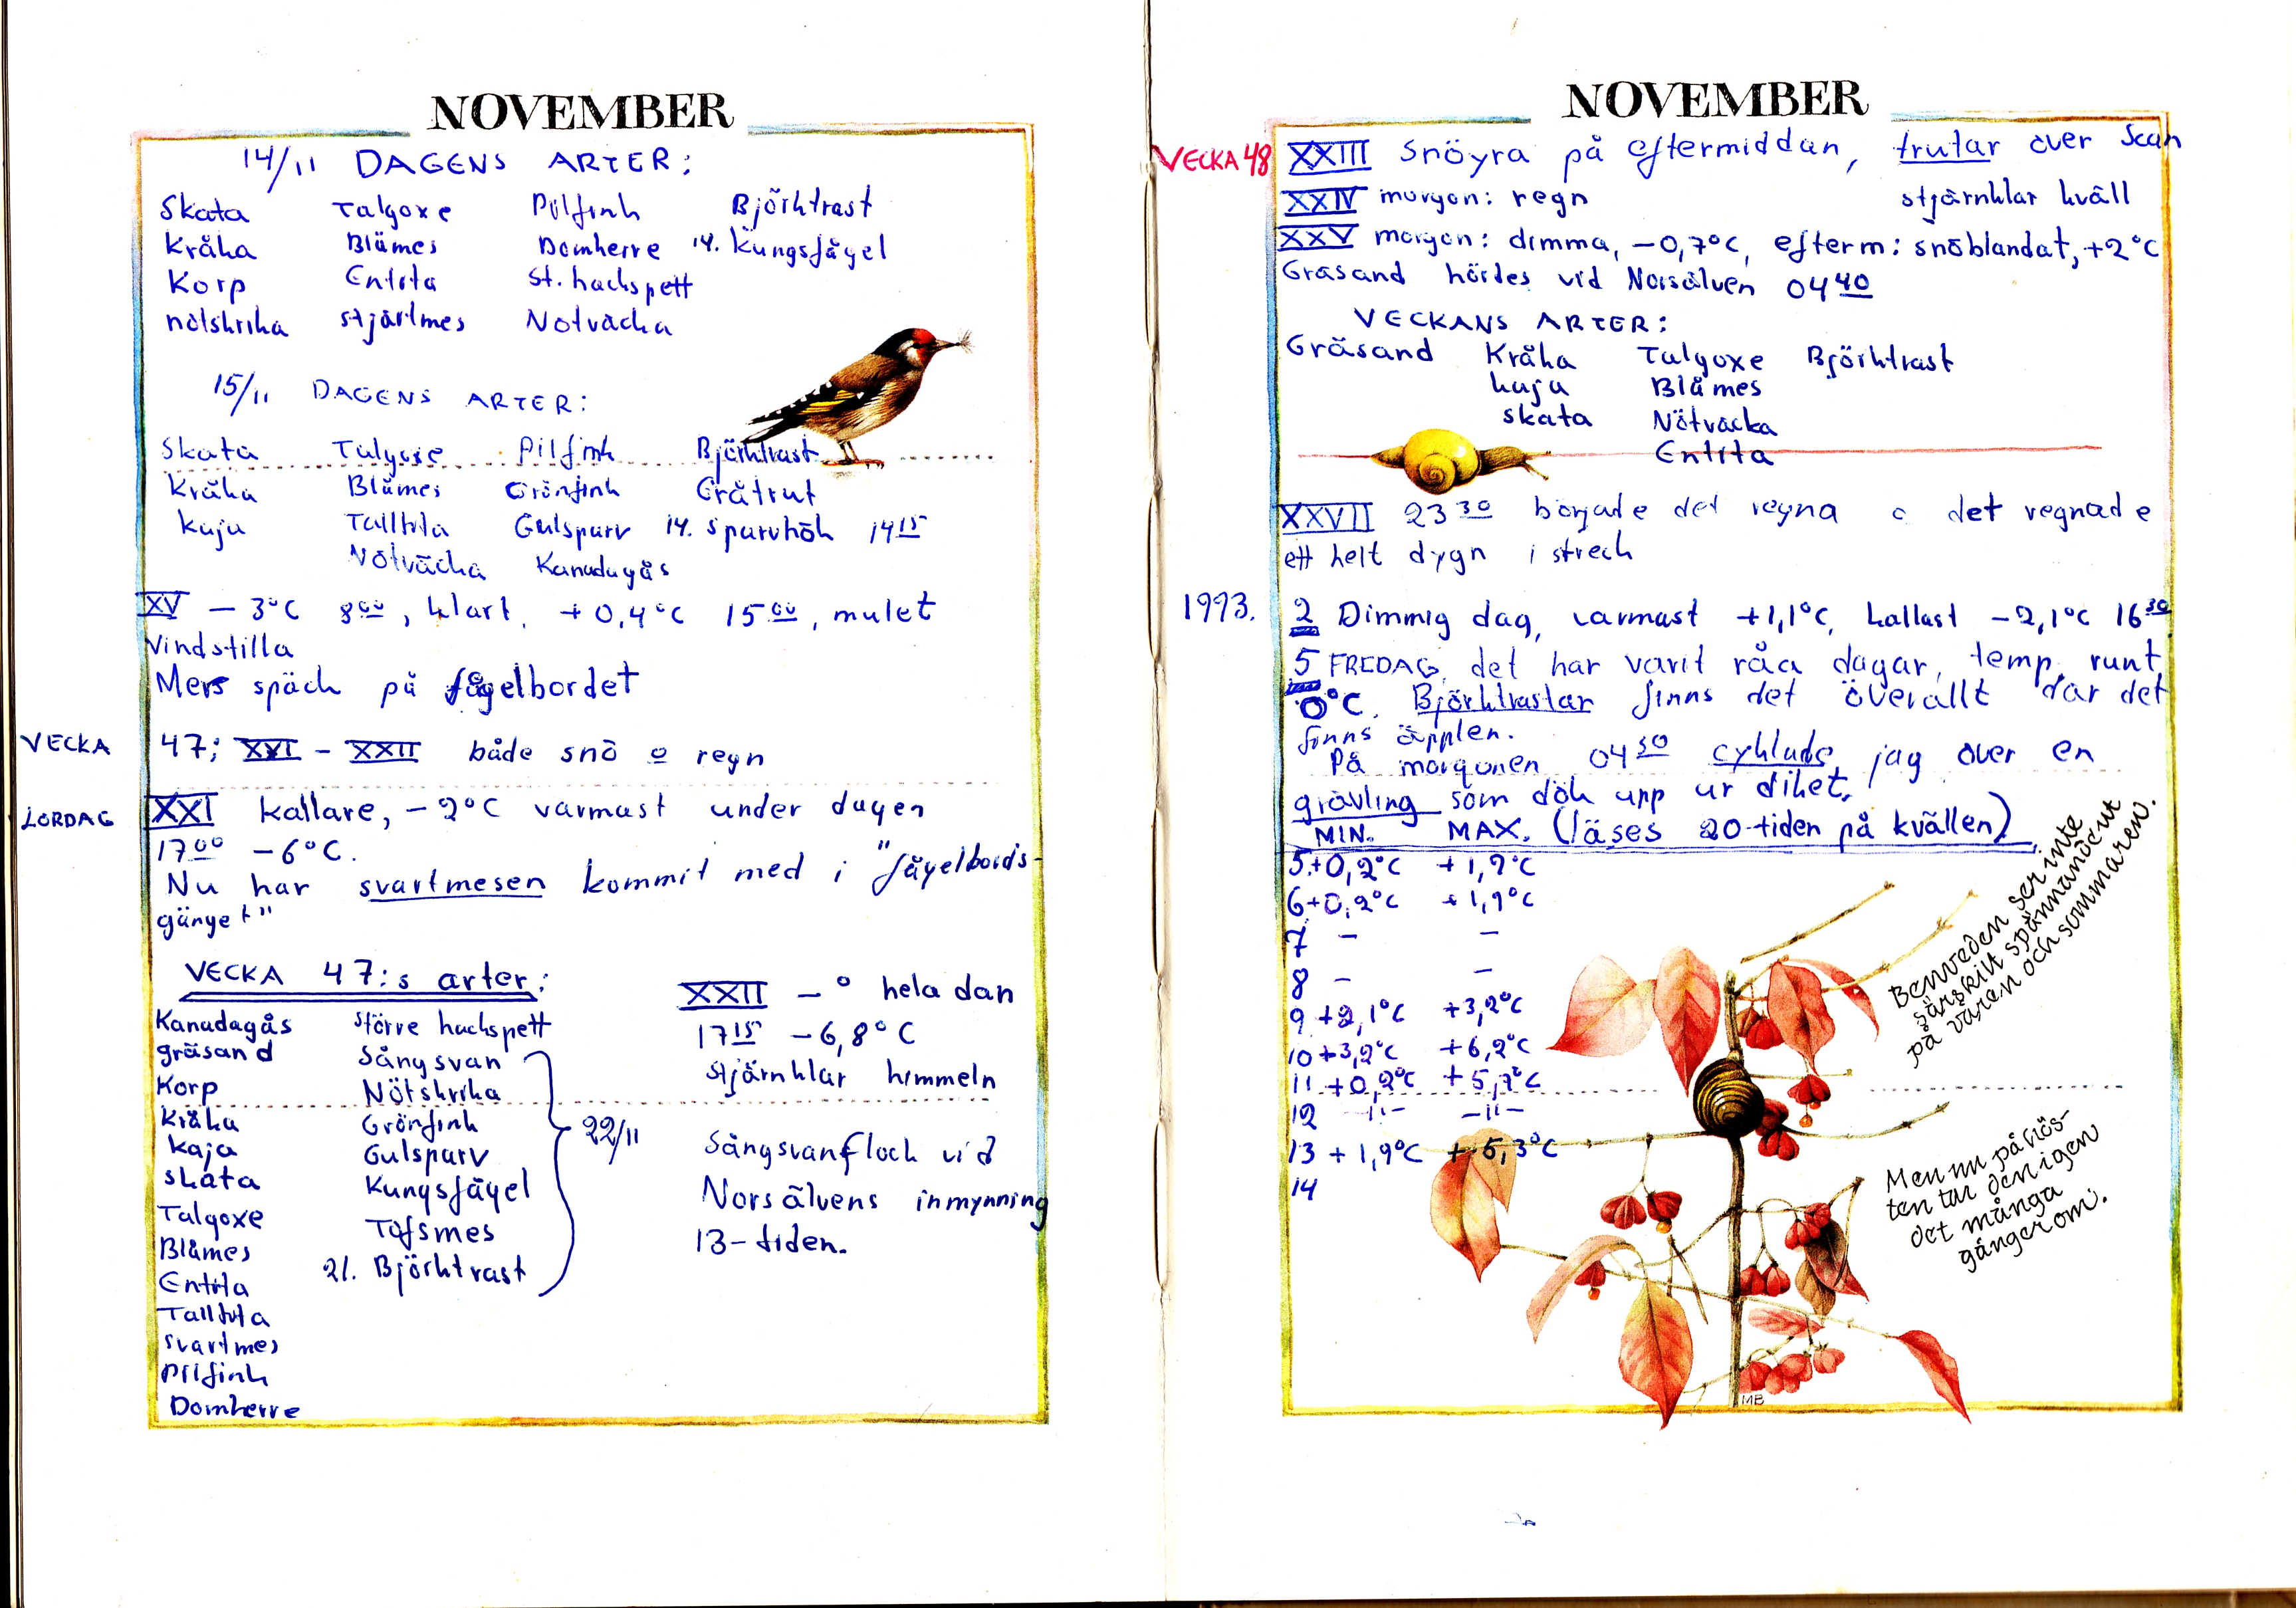 NOVEMBER
14/11 DAGENS ARTER:
Skata Talgoxe Pilfink Björktrast
Kråka Blåmes Domherre 14. Kungsfågel
Korp Entita St. hackspett
nötskrika stjärtmes Nötväcka
15/11 DAGENS ARTER:
Skata Talgoxe Pilfink Björktrast
Kråka Blåmes Grönfink Gråtrut
kaja Talltita Gulsparv 14. sparvhök 14 15
Nötväcka Kanadagås
XV - 3°C 8 00, klart, + 0,4°C 15 00, mulet
Vindstilla
Mers späck på fågelbordet
VECKA 47; XVI - XXII både snö o regn
LÖRDAG XXI kallare, - 2°C varmast under dagen
17 00 - 6°C.
Nu har svartmesen kommit med i "fågelbords-
gänget"
VECKA 47:s arter:
Kanadagås större hackspett
gräsand Sångsvan
Korp Nötskrika
Kråka Grönfink
Kaja Gulsparv
skata Kungsfågel
Talgoxe Tofsmes
Blåmes 21. Björktrast
Entita
Talltita
svartmes
pilfink
Domherre
22/11
XXII - ° hela dan
17 15 - 6,8°C
stjärnklar himmeln
Sångsvanflock vid
Norsälvens inmynning
13-tiden.
NOVEMBER
VECKA 48 XXIII snöyra på eftermiddan, trutar över Scan
XXIV morgon: regn stjärnklar kväll
XXV morgon: dimma, -0,7°C, efterm: snöblandat, +2°C
Gräsand hördes vid Norsälven 04 40
VECKANS ARTER:
Gräsand Kråka Talgoxe Björktrast
kaja Blåmes
skata Nötväcka
Entita
XXVII 23 30 började det regna o det regnade
ett helt dygn i streck
1993. 2 Dimmig dag, varmast +1,1°C, kallast -2,1°C 16 30
5 FREDAG, det har varit råa dagar, temp. runt
0°C. Björktrastar finns det överallt där det
finns äpplen.
På morgonen 04 30 cyklade jag över en
grävling som dök upp ur diket.
MIN. MAX. (läses 20-tiden på kvällen)
5 +0,2°C +1,9°C
6 +0,2°C +1,9°C
7 - -
8 - -
9 +2,1°C +3,2°C
10 +3,2°C +6,2°C
11 +0,2°C +5,7°C
12 -"- -"-
13 + 1,9°C + 5,3°C
14
Benveden ser inte
särskilt spännande ut
på våren och sommaren.
Men nu på hös-
ten tar den igen
det många
gånger om.
MB